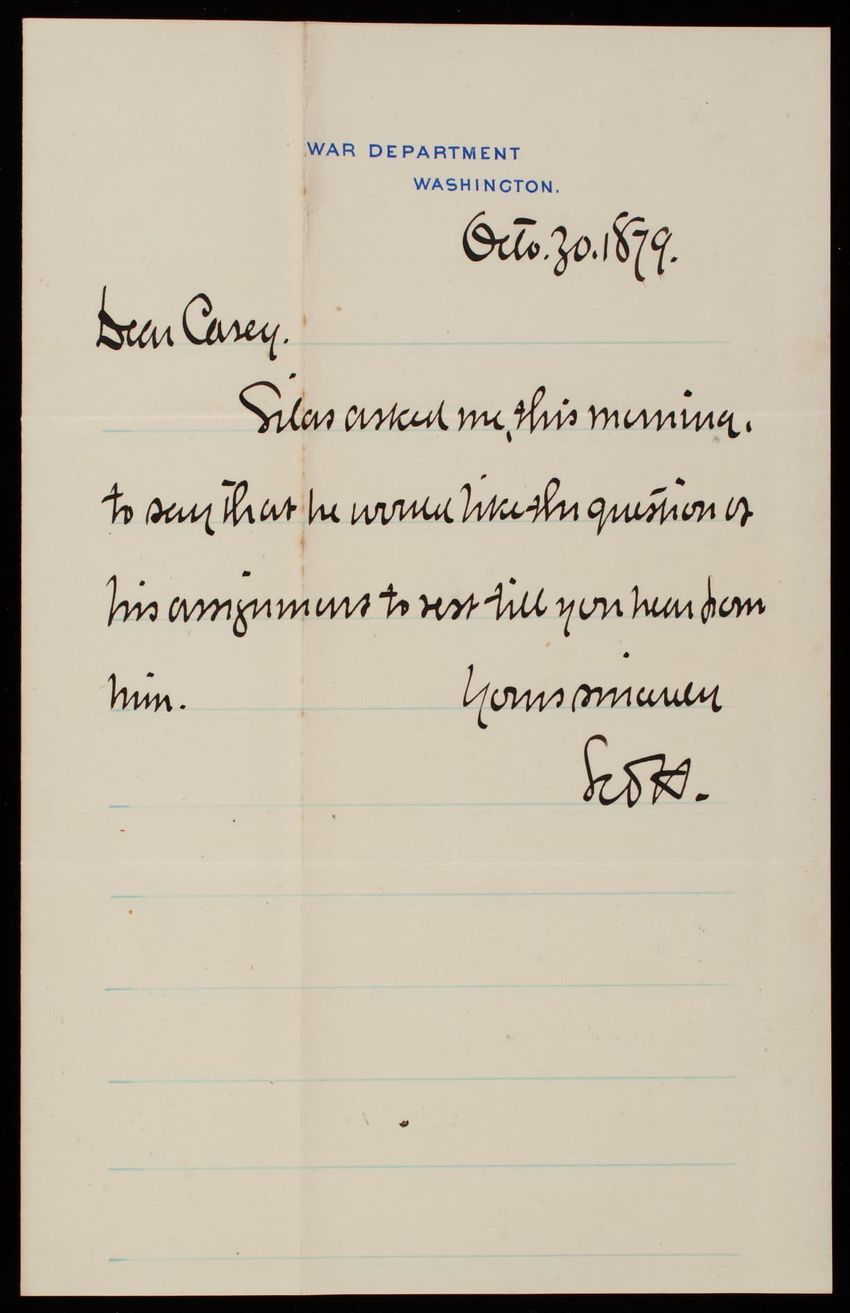 WAR DEPARTMENT
WASHINGTON.
Octo. 30. 1879.
Dear Casey.
Silas asked me, this morning,
to say that he would like the question of
his assignment to rest till you hear from
him. Yours sincerely
Scott.